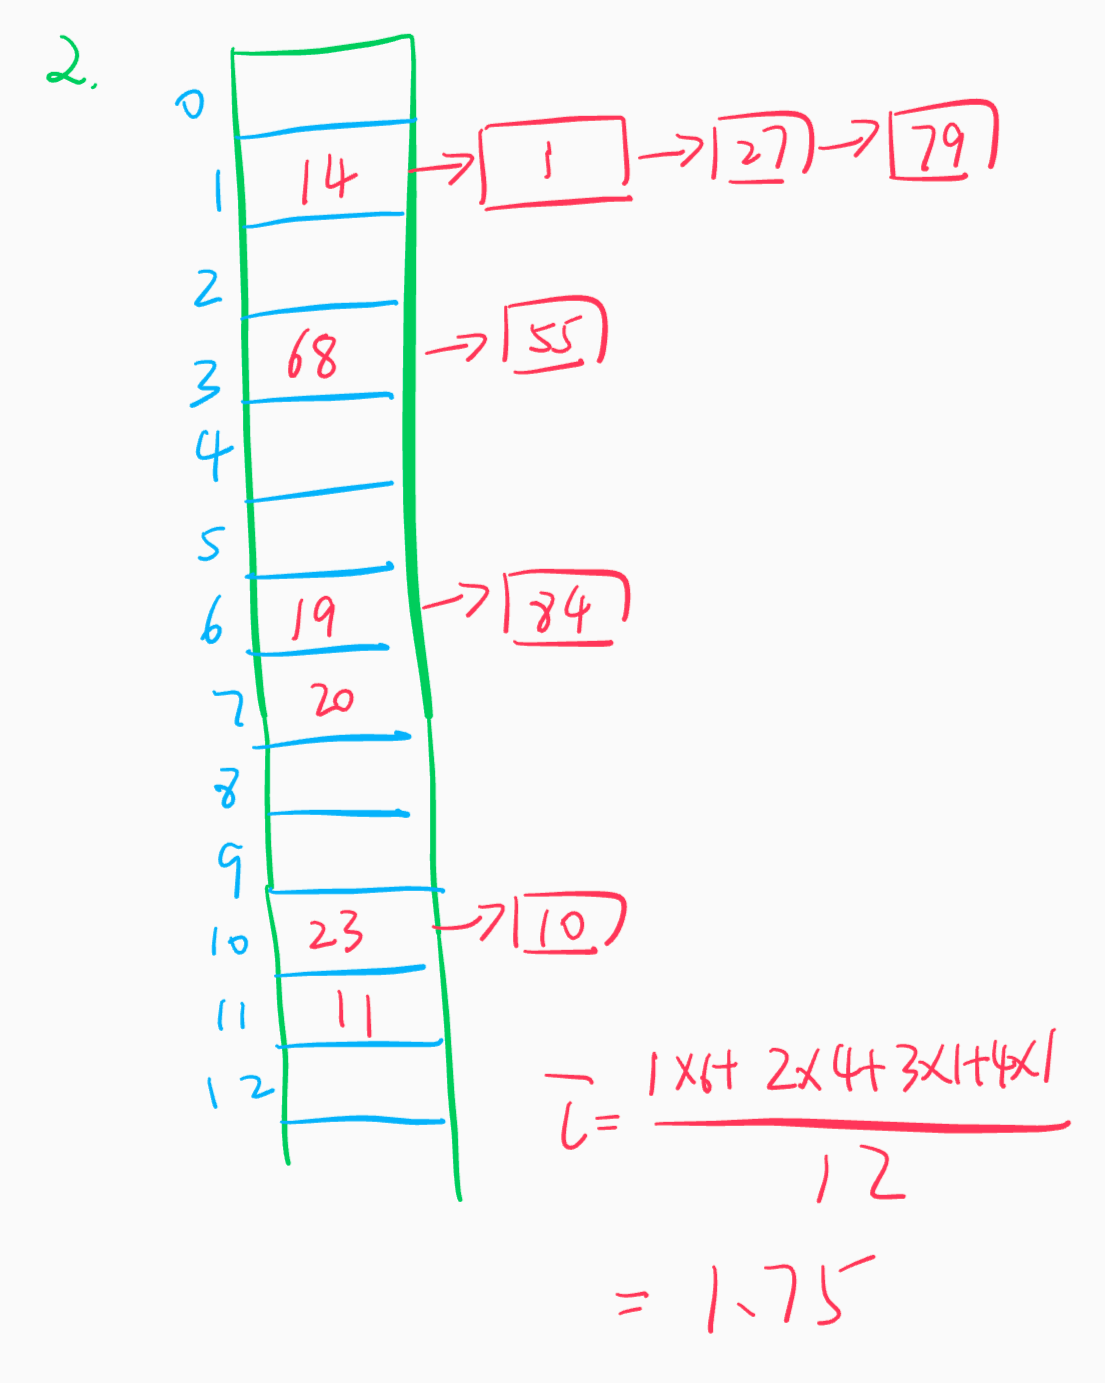 2.
0
1 14 → 1 → 27 → 79
2
3 68 → 55
4
5
6 19 → 84
7 20
8
9
10 23 → 10
11 11
12
l̅ = (1×6+ 2×4+3×1+4×1) / 12
= 1.75